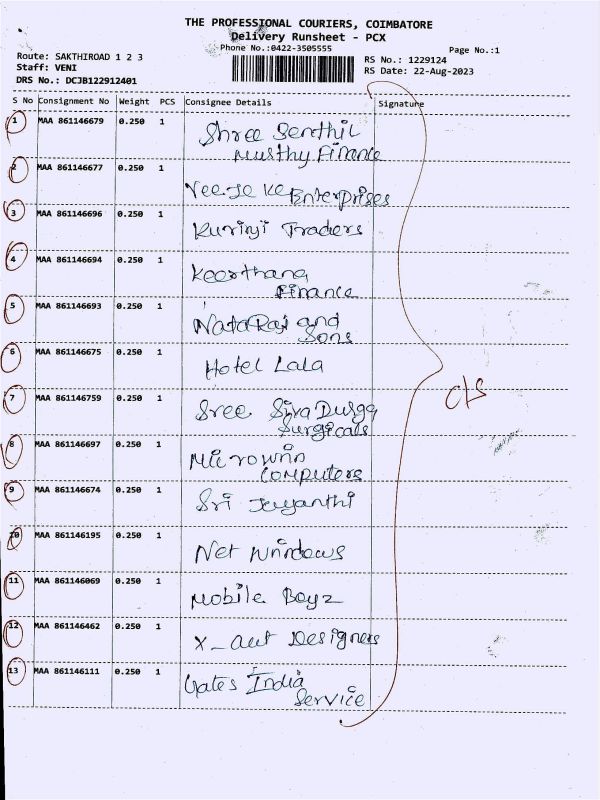 THE PROFESSIONAL COURIERS, COIMBATORE
Delivery Runsheet - PCX
Phone No.:0422-3505555
Page No.:1
Route: SAKTHIROAD 1 2 3
Staff: VENI
DRS No.: DCJB122912401
RS No.: 1229124
RS Date: 22-Aug-2023
S No Consignment No Weight PCS Consignee Details Signature
1 MAA 861146679 0.250 1 Shree Senthil
Murthy Finance
2 MAA 861146677 0.250 1
Enterprises
3 MAA 861146696 0.250 1 Kurinji Traders
4 MAA 861146694 0.250 1 Keerthana
Finance
5 MAA 861146693 0.250 1 NataRaj and
Sons
6 MAA 861146675 0.250 1 Hotel Lala
7 MAA 861146759 0.250 1 Sree Siva Durga
Surgicals
8 MAA 861146697 0.250 1 Microwin
Computers
9 MAA 861146674 0.250 1 Sri Jeyanthi
10 MAA 861146195 0.250 1 Net Windows
11 MAA 861146069 0.250 1 Mobile Boyz
12 MAA 861146462 0.250 1 Designers
13 MAA 861146111 0.250 1 Gates India
Service
c/s